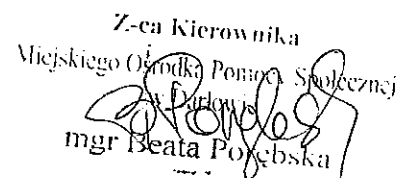 Z-ca Kierownika
Miejskiego Ośrodka Pomocy Społecznej
w Darłowie
mgr Beata Porębska